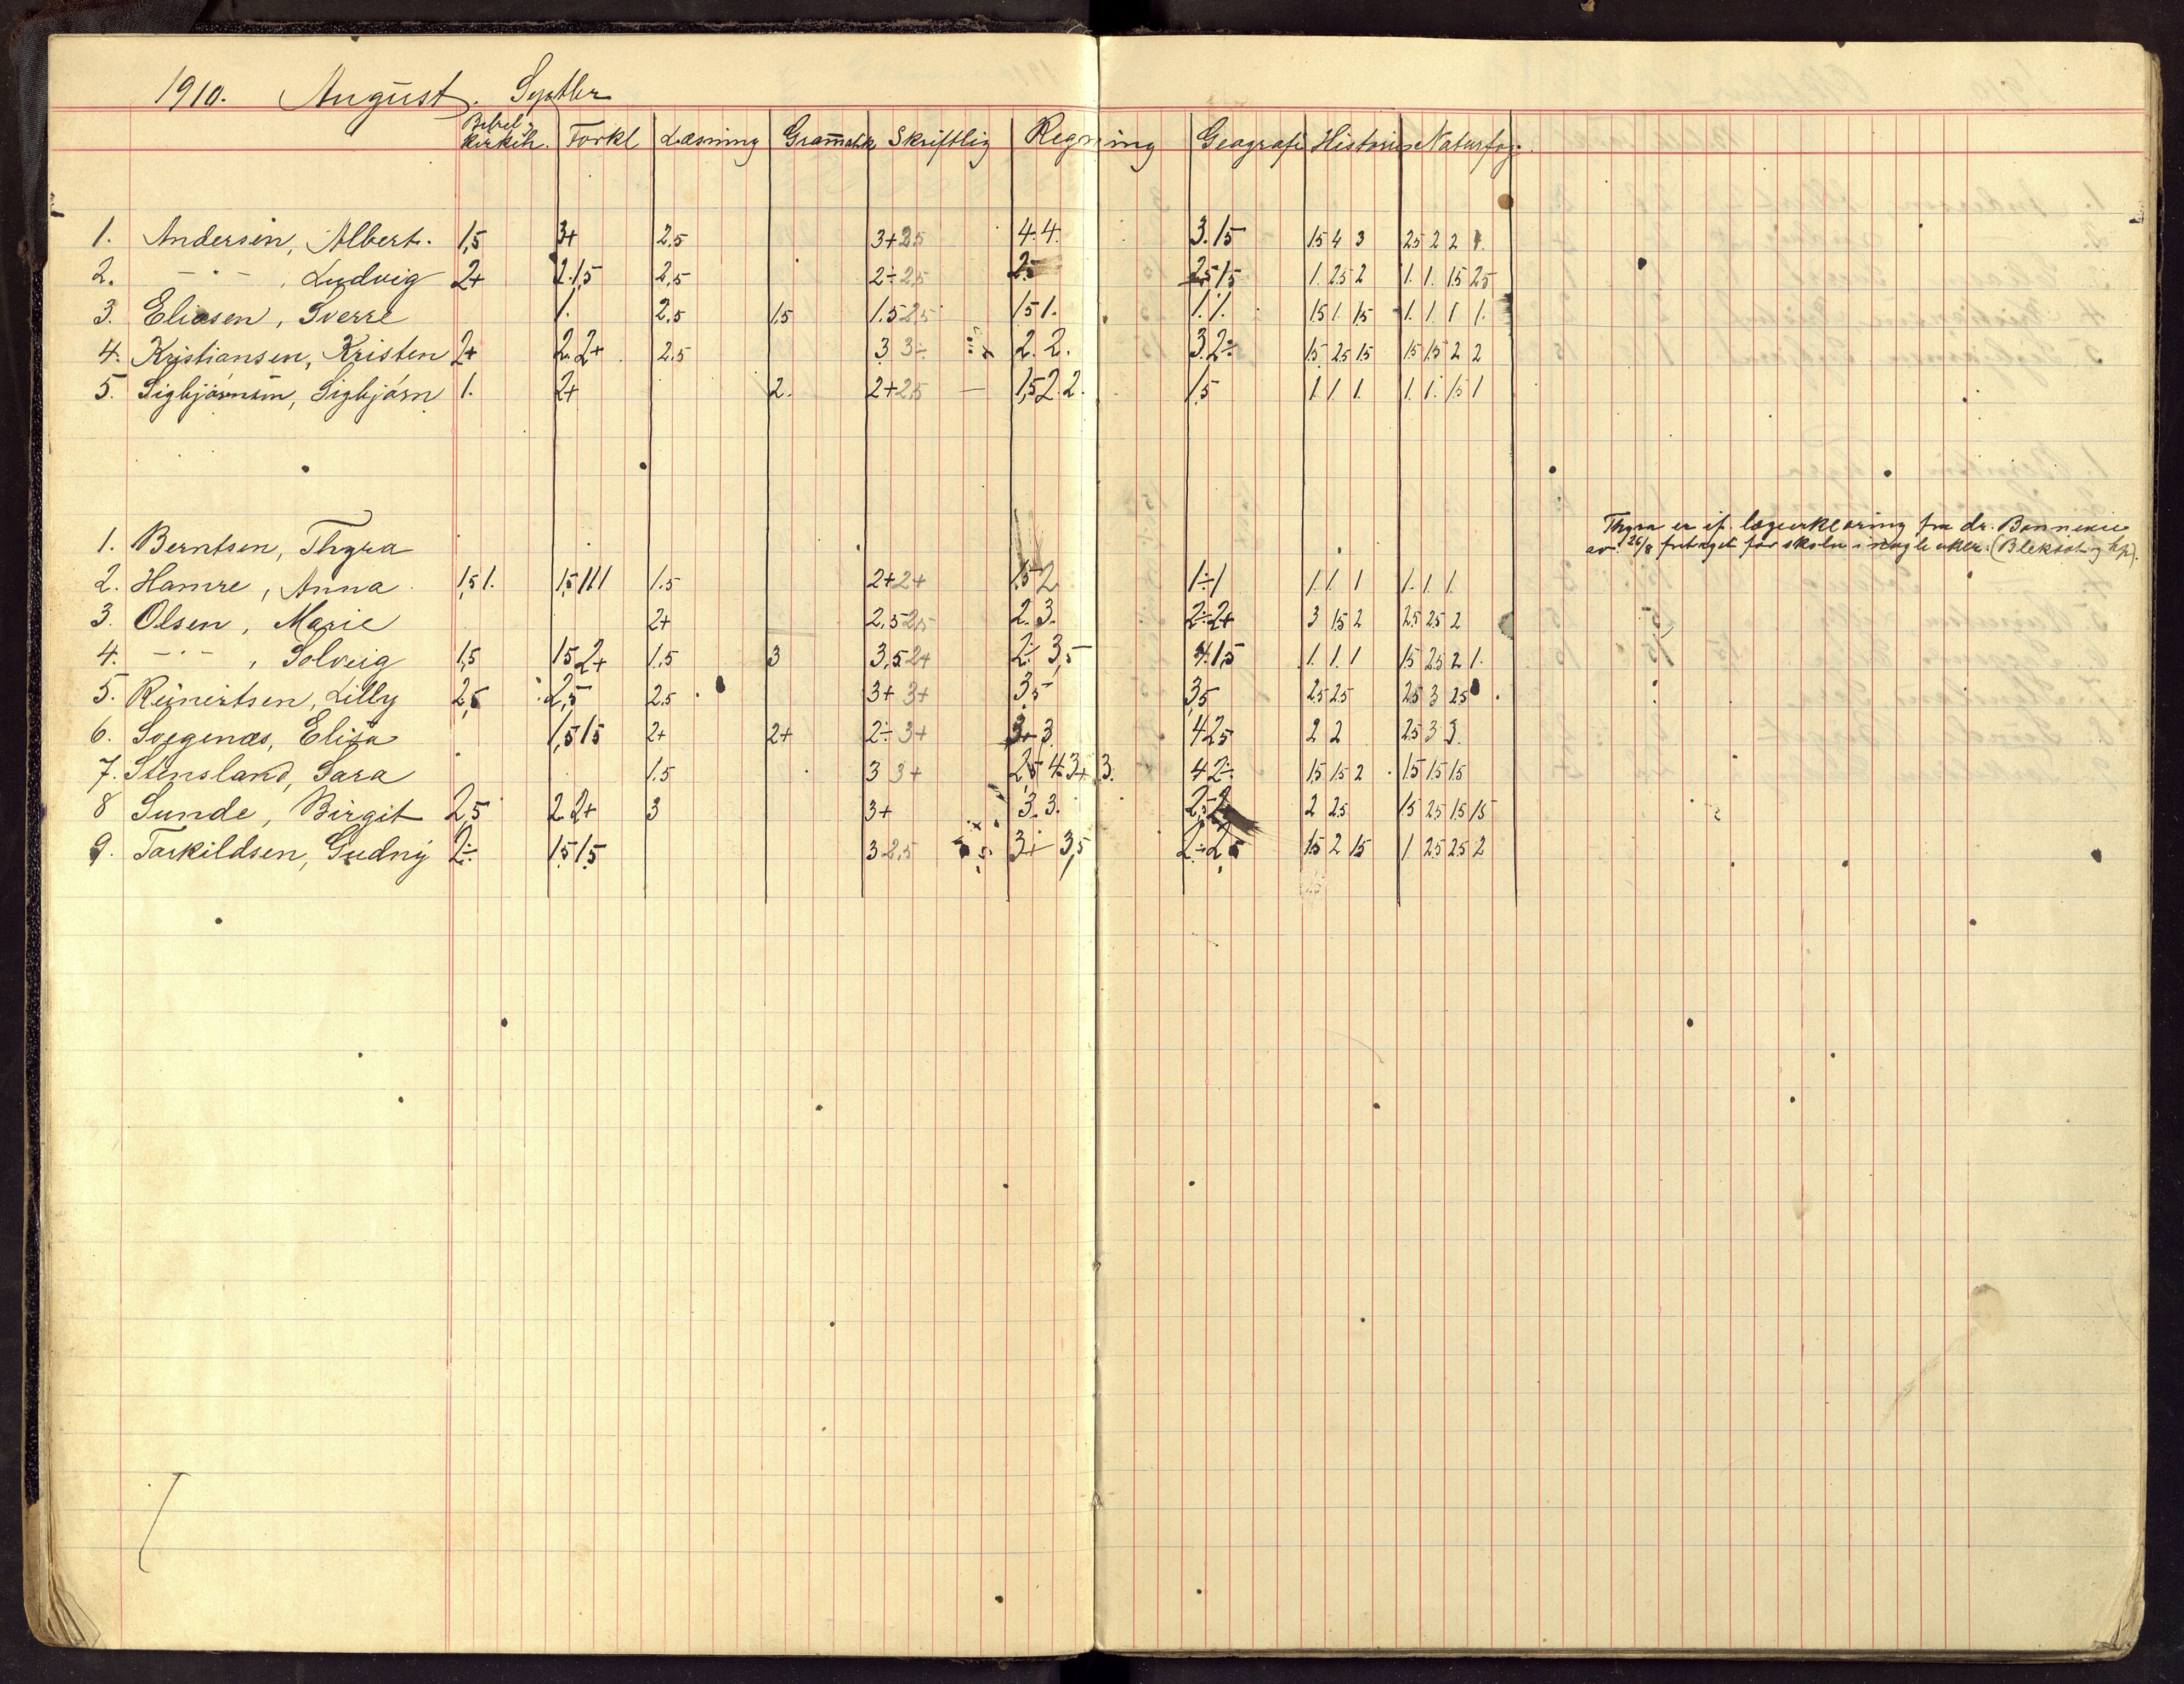 1910. August. Septbr
Bibel. Kirkeh. Forkl Læsning Grammatik Skriftlig Regning Geografi Historie Naturfag.
1. Andersen, Albert. 1,5 3+ 2,5 3+ 2,5 4. 4. 3. 1,5 1,5 4 3 2,5 2 2
2. -"- , Ludvig 2+ 2. 1,5 2,5 2÷ 2,5 2,5 1,5 1. 2,5 2 1. 1. 1,5 2,5
3. Eliasen, Sverre 1. 2,5 1,5 1.5 2,5 1,5 1. 1. 1. 1,5 1. 1,5 1. 1. 1 1.
4. Kristiansen, Kristen 2+ 2. 2+ 2.5 3 3÷ 2. 2. 3. 2÷ 1,5 2,5 1,5 1,5 1,5 2 2
5. Sigbjörnsen, Sigbjörn 1. 2+ 2. 2+ 2,5 — 1,5 2. 2. 1,5 1. 1. 1. 1. 1. 1,5 1
1. Berntsen, Thyra
Thyra er if. lægeerklæring fra dr. Bonnevie
av 26/8 fritaget for skolen i nogle uker. (Bleksot og hp).
2. Hamre, Anna 1,5 1. 1,5 1 1 1 1.5 2+ 2+ 1,5 2 1÷ 1 1. 1. 1 1. 1. 1.
3. Olsen, Marie 2+ 2,5 2,5 2. 3. 2÷ 2+ 3 1,5 2 2,5 2,5 2
4. -"- , Solveig 1,5 1,5 2+ 1,5 3 3,5 2+ 2÷ 3,5 4. 1,5 1. 1. 1 1,5 2,5 2 1.
5. Reinertsen, Lilly 2,5 2,5 2.5 3+ 3+ 3,5 3,5 2,5 2,5 2,5 3 2,5
6. Svegenæs, Elisa 1,5 1,5 2+ 2+ 2÷ 3+ 3+ 3 4 2,5 2 2 2,5 3 3.
7. Stensland, Sara 1.5 3 3+ 2,5 4. 3+ 3. 4 2÷ 1,5 1,5 2 1,5 1,5 1,5
8 Sunde, Birgit 2,5 2 2+ 3 3+ 3. 3. 2,5 2 2 2,5 1,5 2,5 1,5 1,5
9. Torkildsen, Gudny 2÷ 1,5 1,5 3 2,5 3÷ 3,5 2÷ 2,5 1,5 2 1,5 1 2,5 2,5 2